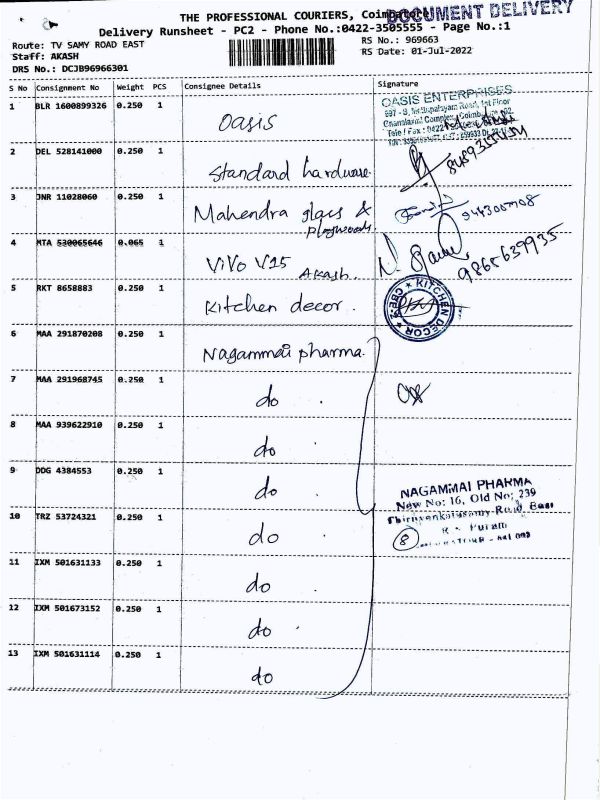 DOCUMENT DELIVERY
THE PROFESSIONAL COURIERS, Coimbatore
Delivery Runsheet - PC2 - Phone No.:0422-3505555 - Page No.:1
Route: TV SAMY ROAD EAST
RS No.: 969663
Staff: AKASH
RS Date: 01-Jul-2022
DRS No.: DCJB96966301
S No Consignment No Weight PCS Consignee Details Signature
1 BLR 1600899326 0.250 1 Oasis
OASIS ENTERPRISES
2 DEL 528141000 0.250 1 Standard hardware
3 JNR 11028060 0.250 1 Mahendra glass &
plywoods
4 MTA 530065646 0.065 1 ViVo V15 Akash
9865639935
5 RKT 8658883 0.250 1 Kitchen decor.
KITCHEN DECOR
CBE-2
6 MAA 291870208 0.250 1 Nagammai pharma.
7 MAA 291968745 0.250 1 do
8 MAA 939622910 0.250 1 do
9 DDG 4384553 0.250 1 do
NAGAMMAI PHARMA
New No: 16, Old No: 239
Thiruvenkatasamy Road East
R.S. Puram
8
10 TRZ 53724321 0.250 1 do
11 IXM 501631133 0.250 1 do
12 IXM 501673152 0.250 1 do
13 IXM 501631114 0.250 1 do